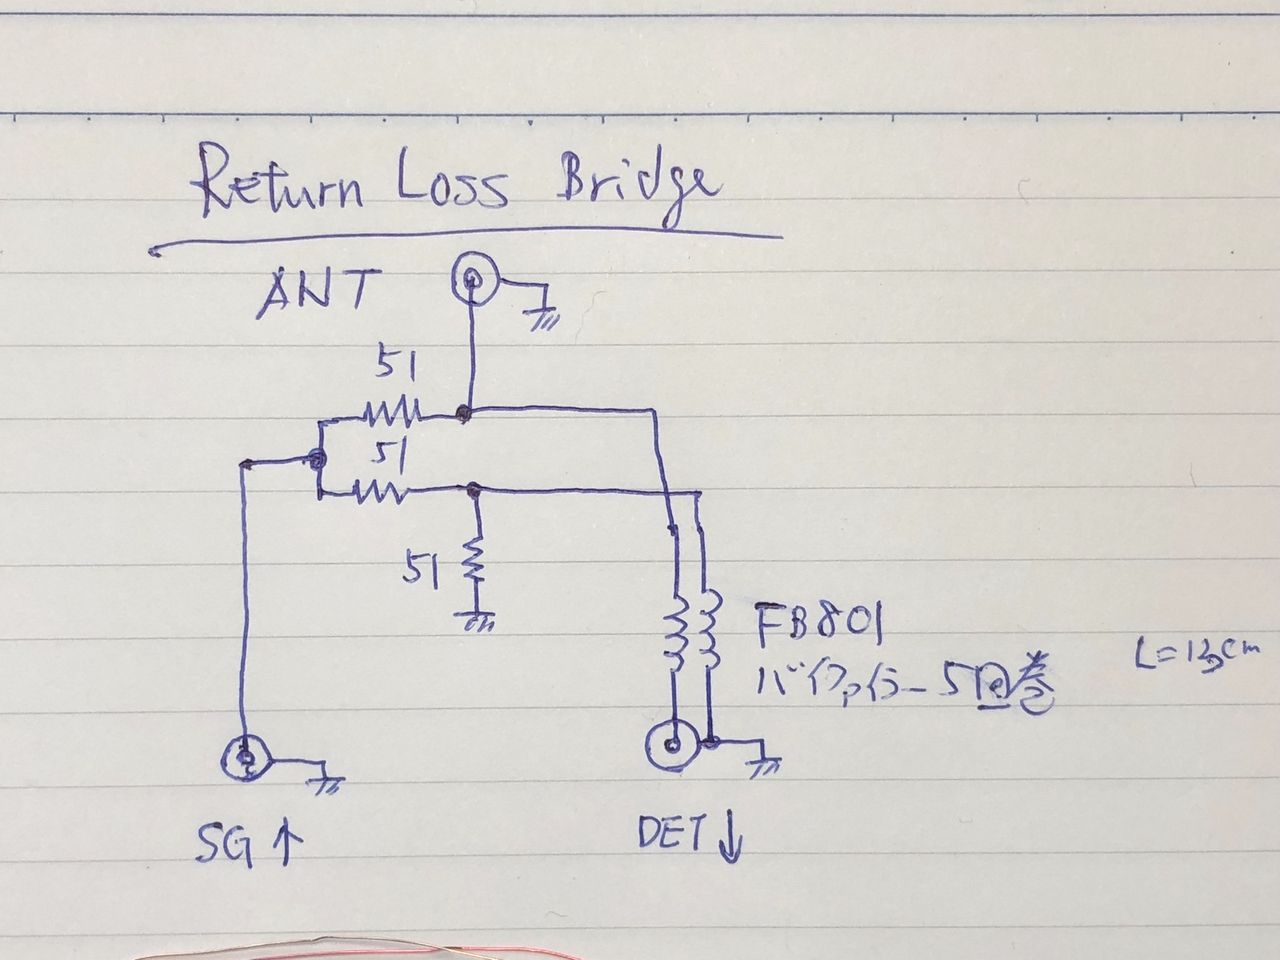 Return Loss Bridge
ANT
51
51
51
FB801
バイファイラー 5回巻
L=13cm
SG↑
DET↓